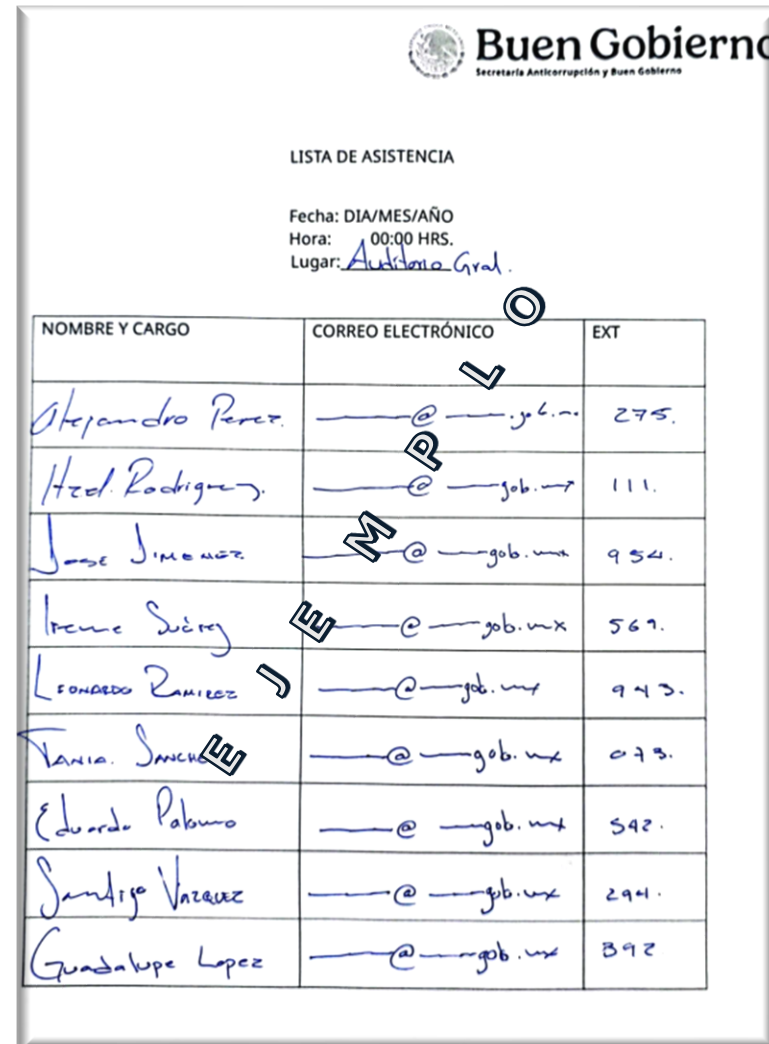 Buen Gobierno
Secretaría Anticorrupción y Buen Gobierno
LISTA DE ASISTENCIA
Fecha: DIA/MES/AÑO
Hora: 00:00 HRS.
Lugar: Auditorio Gral.
NOMBRE Y CARGO CORREO ELECTRÓNICO EXT
Alejandro Perez. @ .gob. 275.
Rodriguez. @ gob. 111.
Jose Jimenez @ gob.mx 954.
Irene Suárez @ gob.mx 569.
LEONARDO RAMIREZ @ gob.mx 943.
TANIA. SANCHE @ gob.mx 073.
Eduardo Palomo @ gob.mx 542.
Santigo VAZQUEZ @ gob.mx 294.
Guadalupe Lopez @ gob.mx 392
EJEMPLO